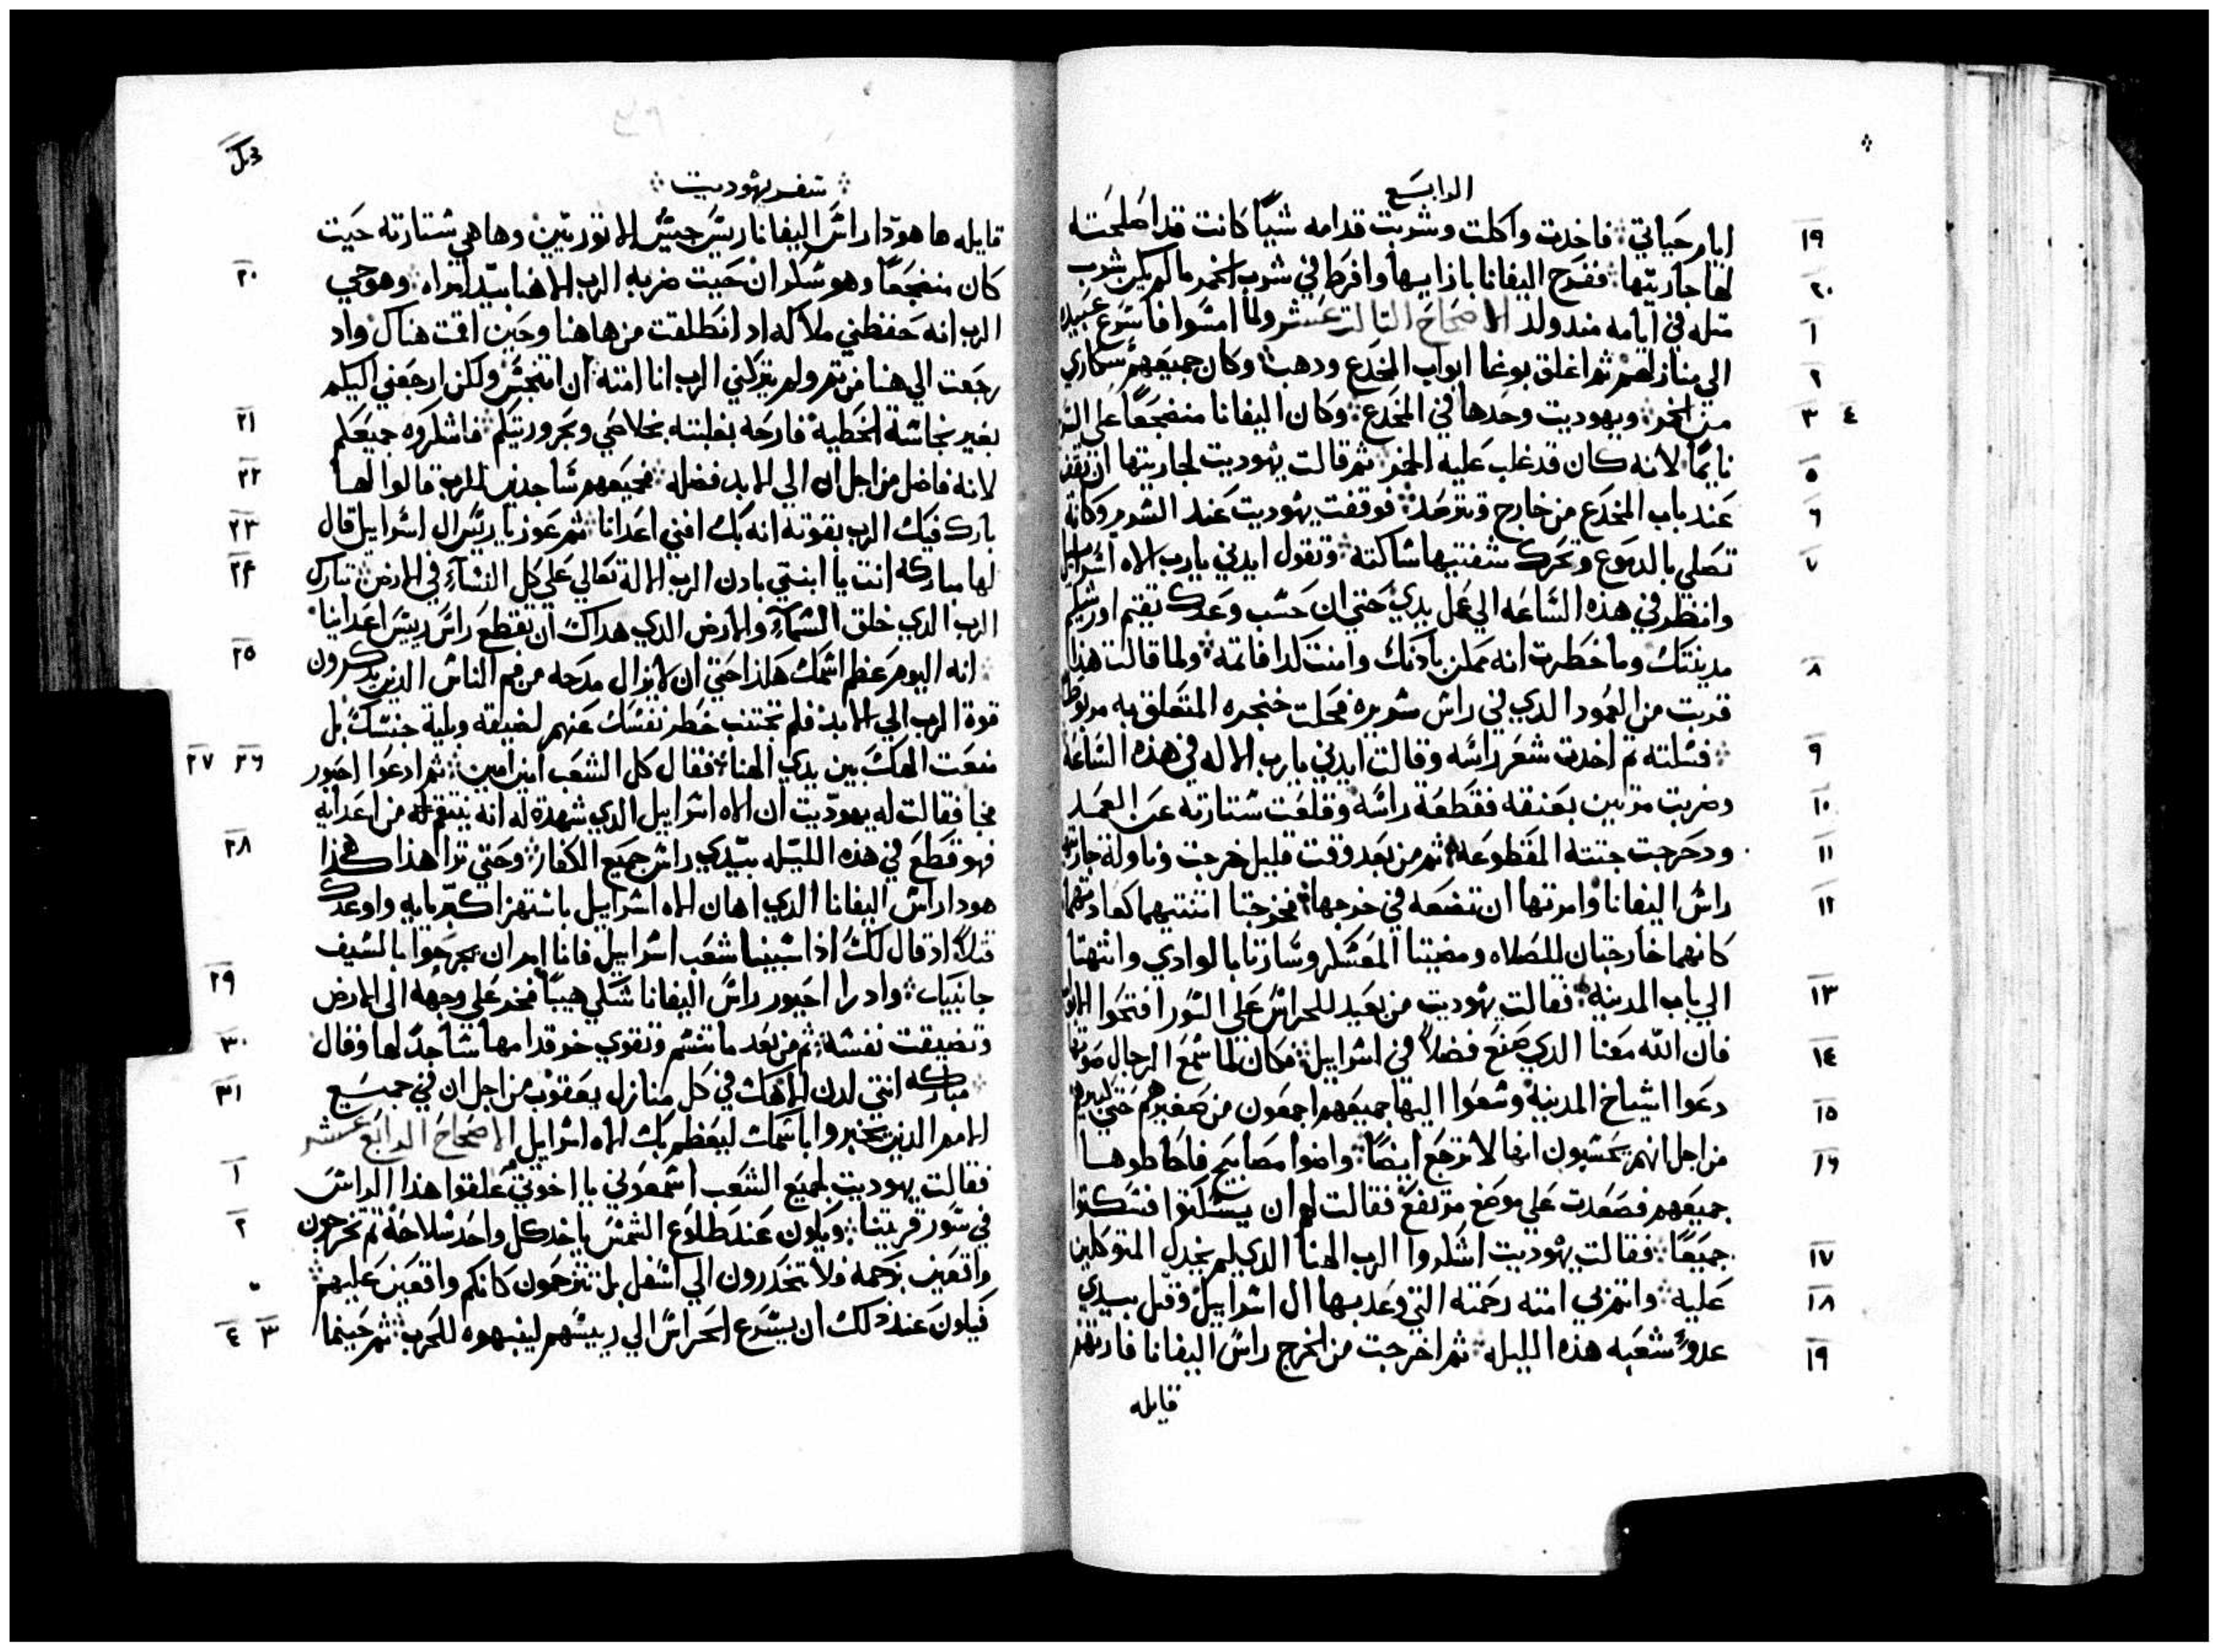 الرابع
ايام حياتي فاخدت واكلت وشربت قدامه شيًا كانت قد اصلحته
١٩
لها جاريتها ففرح اليفانا بازايها وافرط في شرب الخمر ما لم يكن شرب
٢٠
مثله في ايامه مند ولد الاصحاح التالت عشر ولما امسوا فاسرع عبيده
١
الي منازلهم ثم اغلق بوغا ابواب المخدع ودهب وكان جميعهم سكاري
٢
من الخمر ويهوديت وحدها في المخدع وكان اليفانا منضجعًا علي
٣ ٤
نايمًا لانه كان قد غلب عليه الخمر ثم قالت يهوديت لجاريتها ان تقف
٥
عند باب المخدع من خارج وتترصد فوقفت يهوديت عند السرير وكانة
٦
تصلي بالدموع وتحرك شفتيها ساكته وتقول ايدني يارب الاه اسراييل
٧
وانظر في هذه الساعه الي عمل يدي حتي ان حسب وعدك تقيم اورشليم
مدينتك وما خطرت انه ممكن بادنك وامنت كدا فاتمه ولما قالت هذا
٨
قربت من العمود الدي في راس سريره فحلت خنجره المتعلق به مربوطًا
فسلته تم اخدت شعر راسه وقالت ايدني يارب الاله في هذه الساعة
٩
وضربت مرتين بعنقه فقطعة راسه وقلعت ستارته عن العمد
١٠
ودحرجت جتته المقطوعه ثم من بعد وقت قليل خرجت وناولة جاريتها
١١
راس اليفانا وامرتها ان تضعه في خرجها فخرجتا اتنتيهما كعادتهما
١٢
كانهما خارجتان للصلاه ومضيتا المعسكر وسارتا بالوادي وانتهتا
الي باب المدينه فقالت يهوديت من بعيد للحراس علي السور افتحوا
١٣
فان الله معنا الدي صنع فضلاً في اسراييل فكان لما سمع الرجال صوتها
١٤
دعوا اشياخ المدينه وسعوا اليها جميعهم اجمعون من صغيرهم حتي كبيرهم
١٥
من اجل انهم يحسبون انها لا ترجع ايضًا واضوا مصابيح فاحاطوها
١٦
جميعهم فصعدت علي موضع مرتفع فقالت لهم ان يسكتوا فسكتوا
جميعًا فقالت يهوديت اشكروا الرب الهنا الدي لم يخدل المتوكلين
١٧
عليه واتم بي امته رحمته التي وعد بها ال اسراييل وقتل بيدي
١٨
عدوّ شعبه هذه الليله ثم اخرجت من الخرج راس اليفانا فارتهم
١٩
قايله
سفر يهوديت
قايله ها هودا راس اليفانا ريس جيش الاتوريين وها هي ستارته حيت
كان منضجعًا وهو سكران حيت ضربه الرب الاهنا بيد امراه وهو حي
٢٠
الرب انه حفظني ملاكه اد انطلقت من هاهنا وحين اقمت هناك واد
رجعت الي هنا من تم ولم يتركني الرب انا امته ان اتنجس ولكن ارجعني اليكم
بغير نجاسة الخطية فارحه بغلبته بخلاصي وبحروريتكم فاشكروه جميعكم
٢١
لانه فاضل من اجل ان الي الابد فضله فجميعهم ساجدين للرب قالوا لها
٢٢
بارك فيك الرب بقوته انه بك افني اعدانا ثم عوزيا ريس ال اسراييل قال
٢٣
لها مباركه انت يا ابنتي بادن الرب الالة تعالي علي كل النساء في الارض تبارك
٢٤
الرب الدي خلق السماء والارض الدي هداك ان يقطع راس ريس اعداينا
انه اليوم عظم اسمك هكدا حتي ان لا يزال مدحه من فم الناس الدين يدكرون
٢٥
قوة الرب الي الابد فلم تجتنب خطر نفسك عنهم لضيقه وبلية جنسك بل
منعت الهك بين يدي الهنا فقال كل الشعب امين امين ثم ادعوا احيور
٢٦ ٢٧
فجا فقالت له يهوديت ان الاه اسراييل الدي شهدة له انه ينتقم من اعدايه
فهو قطع في هذه الليله بيدي راس جميع الكفار وحتي ترا هذا هكذا
٢٨
هودا راس اليفانا الدي اهان الاه اسراييل باستهزا كبريايه واوعدك
قتلاً اد قال لك اذا سبينا شعب اسراييل فانا امر ان يجرحوا بالسيف
جانبيك واد را احيور راس اليفانا شكي هيبًا فخر علي وجهه الي الارض
٢٩
وتضيقت نفسه ثم من بعد ما تنسم وتقوي خر قدامها ساجدًا لها وقال
٣٠
مباركه انتي لدن الاهك في كل منازل يعقوب من اجل ان في جميع
٣١
الامم الدين يخبروا باسمك ليعظم بك الاه اسراييل الاصحاح الرابع عشر
فقالت يهوديت لجميع الشعب اسمعوني يا اخوتي علقوا هذا الراس
١
في سور قريتنا ويكون عند طلوع الشمس ياخد كل واحد سلاحه تم تخرجون
٢
واقعين بزحمه ولا تنحدرون الي اسفل بل تترحون كانكم واقعين عليهم
فيكون عند دلك ان يسرع الحراس الي رييسهم لينبهوه للحرب ثم حينما
٣ ٤